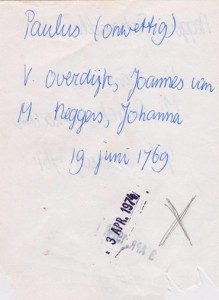 Paulus (onwettig)
V. Overdijk, Joannes van
M. Neggers, Johanna
19 juni 1769
3 APR. 1974